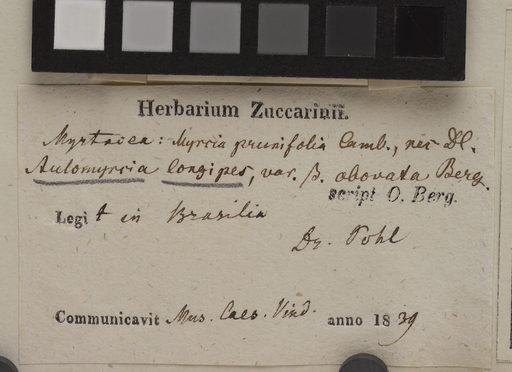 Herbarium Zuccarinii.
Myrtacea: Myrcia prunifolia Camb., nec DC.
Aulomyrcia longipes, var. β. obovata Berg.
script O. Berg.
Legit in Brasilia
Dr. Pohl
Communicavit Mus. Caes. Vind. anno 1839